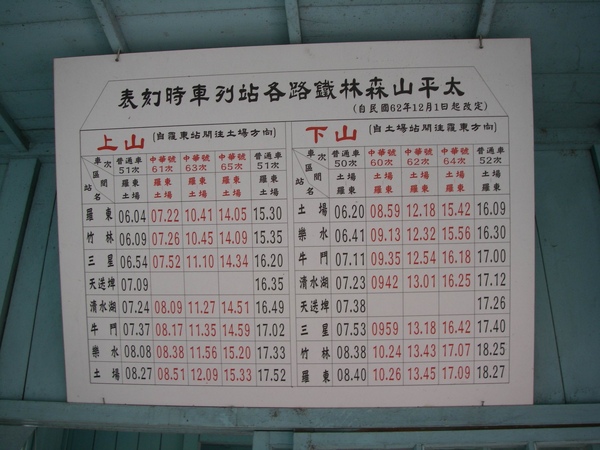 表刻時車列站各路鐵林森山平太
(自民國62年12月1日起改定)
上山 (自羅東站開往土場方向)
車次 普通車51次 中華號61次 中華號63次 中華號65次 普通車51次
區間 羅東 土場 羅東 土場 羅東 土場 羅東 土場 羅東 土場
站名
羅東 06.04 07.22 10.41 14.05 15.30
竹林 06.09 07.26 10.45 14.09 15.35
三星 06.54 07.52 11.10 14.34 16.20
天送埤 07.09 16.35
清水湖 07.24 08.09 11.27 14.51 16.49
牛門 07.37 08.17 11.35 14.59 17.02
樂水 08.08 08.38 11.56 15.20 17.33
土場 08.27 08.51 12.09 15.33 17.52
下山 (自土場站開往羅東方向)
車次 普通車50次 中華號60次 中華號62次 中華號64次 普通車52次
區間 羅東 土場 羅東 土場 羅東 土場 羅東 土場 羅東 土場
站名
土場 06.20 08.59 12.18 15.42 16.09
樂水 06.41 09.13 12.32 15.56 16.30
牛門 07.11 09.35 12.54 16.18 17.00
清水湖 07.23 0942 13.01 16.25 17.12
天送埤 07.38 17.26
三星 07.53 0959 13.18 16.42 17.40
竹林 08.38 10.24 13.43 17.07 18.25
羅東 08.40 10.26 13.45 17.09 18.27